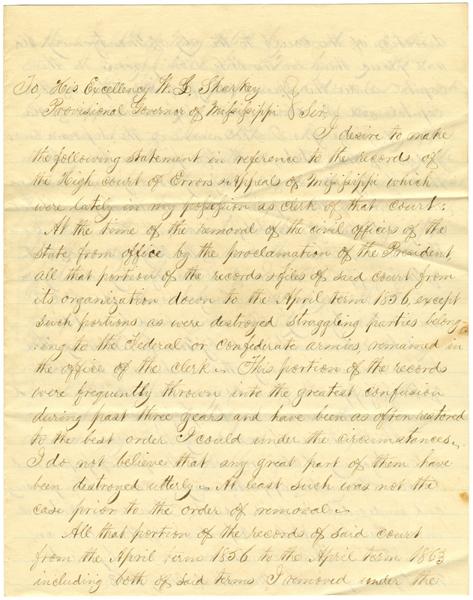 To His Excellency W. L. Sharkey
Provisional Governor of Mississippi } Sir,
I desire to make
the following statement in reference to the records of
the High court of Errors & Appeal of Mississippi which
were lately in my possession as clerk of that court:
At the time of the removal of the civil officers of the
State from office by the proclamation of the President,
all that portion of the records & files of said court from
its organization down to the April term 1856, except
such portions as were destroyed straggling parties belong
ing to the Federal or Confederate armies, remained in
the office of the clerk. This portion of the records
were frequently thrown into the greatest confusion
during past three years and have been as often restored
to the best order I could under the circumstances.
I do not believe that any great part of them have
been destroyed utterly. At least such was not the
case prior to the order of removal.
All that portion of the records of said court
from the April term 1856 to the April term 1863
including both of said terms I removed under the